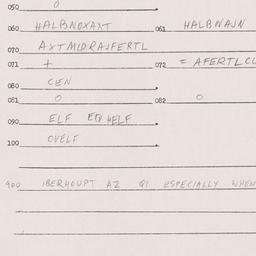 050 0
060 HALBNOXAXT 061 HALBNAJN
070 AXTMIDRAJFERTL
071 + 072 = AFERTLCL
080 CEN
081 0 082 0
090 ELF EQ HELF
100 OVELF
900 IBERHOUPT AZ QI ESPECIALLY WHEN